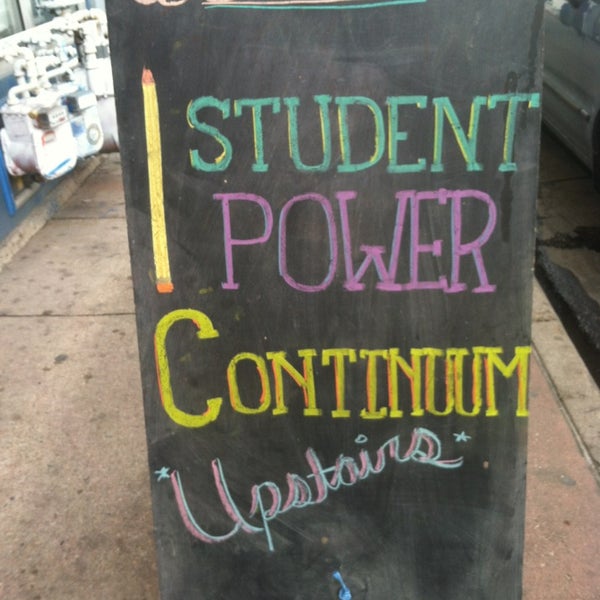 STUDENT
POWER
CONTINUUM
*Upstairs*